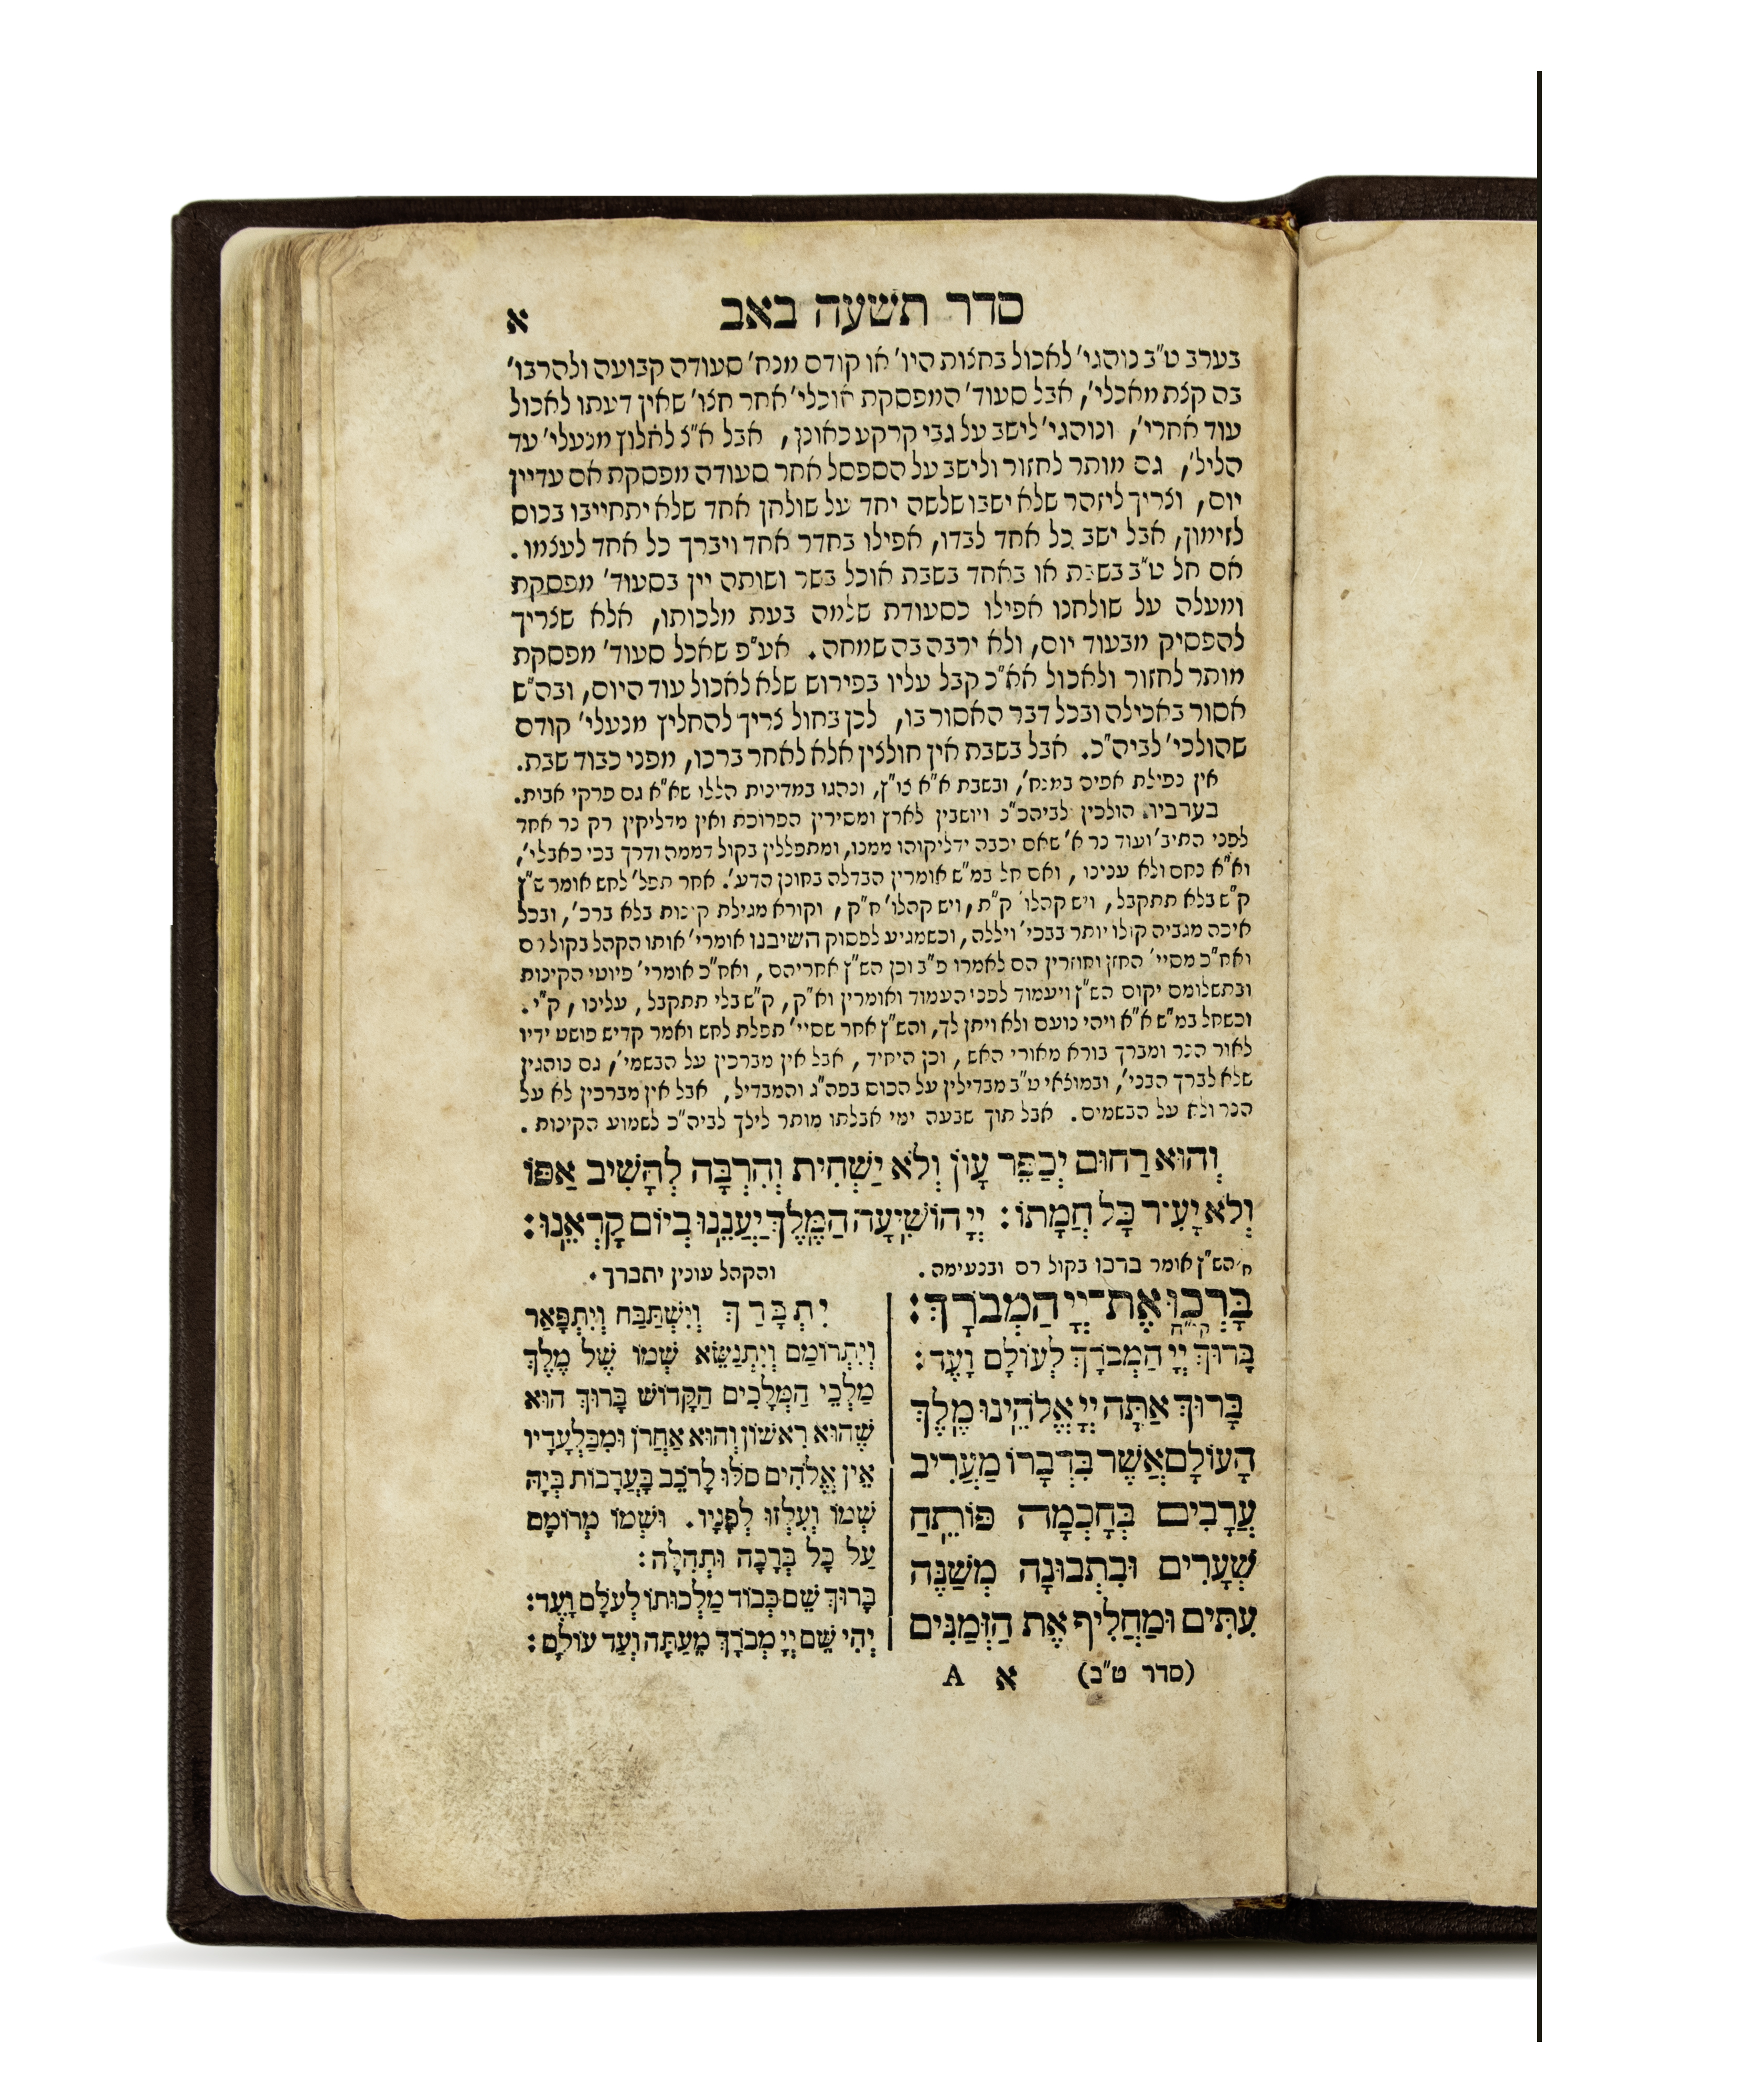 סדר תשעה באב
א
בערב ט"ב נוהגי' לאכול בחצות היו' או קודם מנח' סעודה קבועה ולהרבו'
בה קצת מאכלי', אבל סעוד' המפסקת אוכלי' אחר חצו' שאין דעתו לאכול
עוד אחרי', ונוהגי' לישב על גבי קרקע כאונן, אבל א"צ לחלוץ מנעלי' עד
הליל', גם מותר לחזור ולישב על הספסל אחר סעודה מפסקת אם עדיין
יום, וצריך ליזהר שלא ישבו שלשה יחד על שולחן אחד שלא יתחייבו בכוס
לזימון, אבל ישב כל אחד לבדו, אפילו בחדר אחד ויברך כל אחד לעצמו.
אם חל ט"ב בשבת או באחד בשבת אוכל בשר ושותה יין בסעוד' מפסקת
ומעלה על שולחנו אפילו כסעודת שלמה בעת מלכותו, אלא שצריך
להפסיק מבעוד יום, ולא ירבה בה שמחה. אע"פ שאכל סעוד' מפסקת
מותר לחזור ולאכול אא"כ קבל עליו בפירוש שלא לאכול עוד היום, ובה"ש
אסור באכילה ובכל דבר האסור בו, לכן בחול צריך להחליץ מנעלי' קודם
שהולכי' לביה"כ. אבל בשבת אין חולצין אלא לאחר ברכו, מפני כבוד שבת.
אין נפילת אפים במנח', ובשבת א"א צו"ץ, ונהגו במדינות הללו שא"א גם פרקי אבות.
בערבית הולכין לביהכ"נ ויושבין לארץ ומסירין הפרוכת ואין מדליקין רק נר אחד
לפני התיב' ועוד נר א' שאם יכבה ידליקוהו ממנו, ומתפללין בקול דממה ודרך בכי כאבלי',
וא"א נחם ולא עננו, ואם חל במ"ש אומרין הבדלה בחונן הדע'. אחר תפל' לחש אומר ש"ץ
ק"ש בלא תתקבל, ויש קהלו' ק"ת, ויש קהלו' ח"ק, וקורא מגילת קינות בלא ברכ', ובכל
איכה מגביה קולו יותר בבכי' ויללה, וכשמגיע לפסוק השיבנו אומרי' אותו הקהל בקול רם
ואח"כ מסיי' החזן וחוזרין הם לאמרו פ"ב וכן הש"ץ אחריהם, ואח"כ אומרי' פיוטי הקינות
ובתשלומם יקום הש"ץ ויעמוד לפני העמוד ואומרין וא"ק, ק"ש בלי תתקבל, עלינו, ק"י.
וכשחל במ"ש א"א ויהי נועם ולא ויתן לך, והש"ץ אחר שסיי' תפלת לחש ואמר קדיש פושט ידיו
לאור הנר ומברך בורא מאורי האש, וכן היחיד, אבל אין מברכין על הבשמי', גם נוהגין
שלא לברך הבני', ובמוצאי ט"ב מבדילין על הכוס בפה"ג והמבדיל, אבל אין מברכין לא על
הנר ולא על הבשמים. אבל תוך שבעה ימי אבלתו מותר לילך לביה"כ לשמוע הקינות.
וְהוּא רַחוּם יְכַפֵּר עָוֹן וְלֹא יַשְׁחִית וְהִרְבָּה לְהָשִׁיב אַפּוֹ
וְלֹא יָעִיר כָּל חֲמָתוֹ: יְיָ הוֹשִׁיעָה הַמֶּלֶךְ יַעֲנֵנוּ בְיוֹם קָרְאֵנוּ:
הש"ץ אומר ברכו בקול רם ובנעימה.
בָּרְכוּ אֶת־יְיָ הַמְבֹרָךְ:
קו"ח
בָּרוּךְ יְיָ הַמְבֹרָךְ לְעוֹלָם וָעֶד:
בָּרוּךְ אַתָּה יְיָ אֱלֹהֵינוּ מֶלֶךְ
הָעוֹלָם אֲשֶׁר בִּדְבָרוֹ מַעֲרִיב
עֲרָבִים בְּחָכְמָה פּוֹתֵחַ
שְׁעָרִים וּבִתְבוּנָה מְשַׁנֶּה
עִתִּים וּמַחֲלִיף אֶת הַזְּמַנִּים
והקהל עונין יתברך.
יִתְבָּרַךְ וְיִשְׁתַּבַּח וְיִתְפָּאַר
וְיִתְרוֹמַם וְיִתְנַשֵּׂא שְׁמוֹ שֶׁל מֶלֶךְ
מַלְכֵי הַמְּלָכִים הַקָּדוֹשׁ בָּרוּךְ הוּא
שֶׁהוּא רִאשׁוֹן וְהוּא אַחֲרֹן וּמִבַּלְעָדָיו
אֵין אֱלֹהִים סֹלּוּ לָרֹכֵב בָּעֲרָבוֹת בְּיָהּ
שְׁמוֹ וְעִלְזוּ לְפָנָיו. וּשְׁמוֹ מְרוֹמָם
עַל כָּל בְּרָכָה וּתְהִלָּה:
בָּרוּךְ שֵׁם כְּבוֹד מַלְכוּתוֹ לְעֹלָם וָעֶד:
יְהִי שֵׁם יְיָ מְבֹרָךְ מֵעַתָּה וְעַד עוֹלָם:
(סדר ט"ב) א A